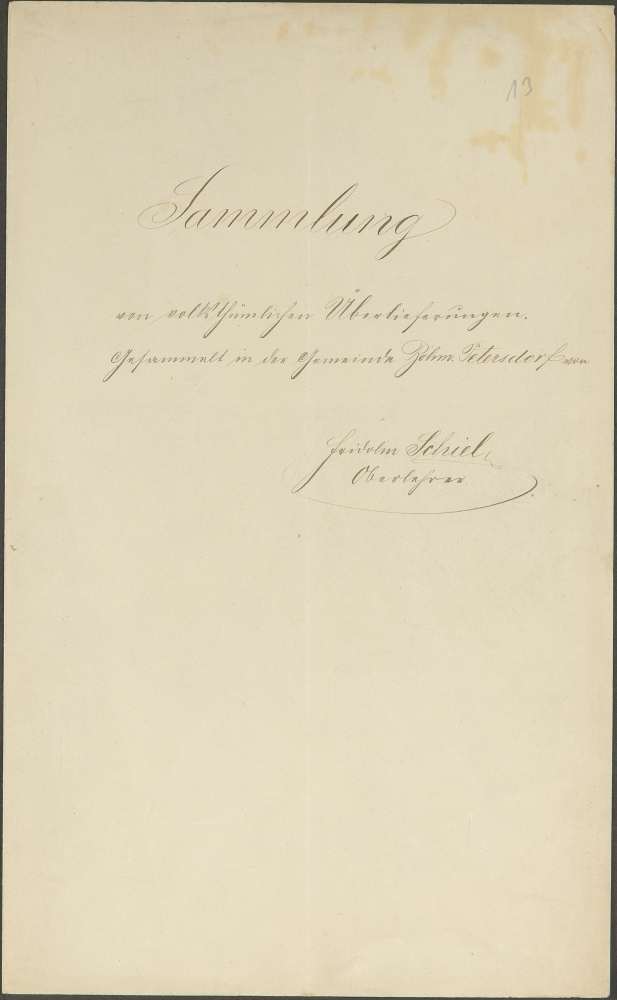 13
Sammlung
von volksthümlichen Überlieferungen.
Gesammelt in der Gemeinde Böhm. Petersdorf von
Fridolin Schiel,
Oberlehrer.